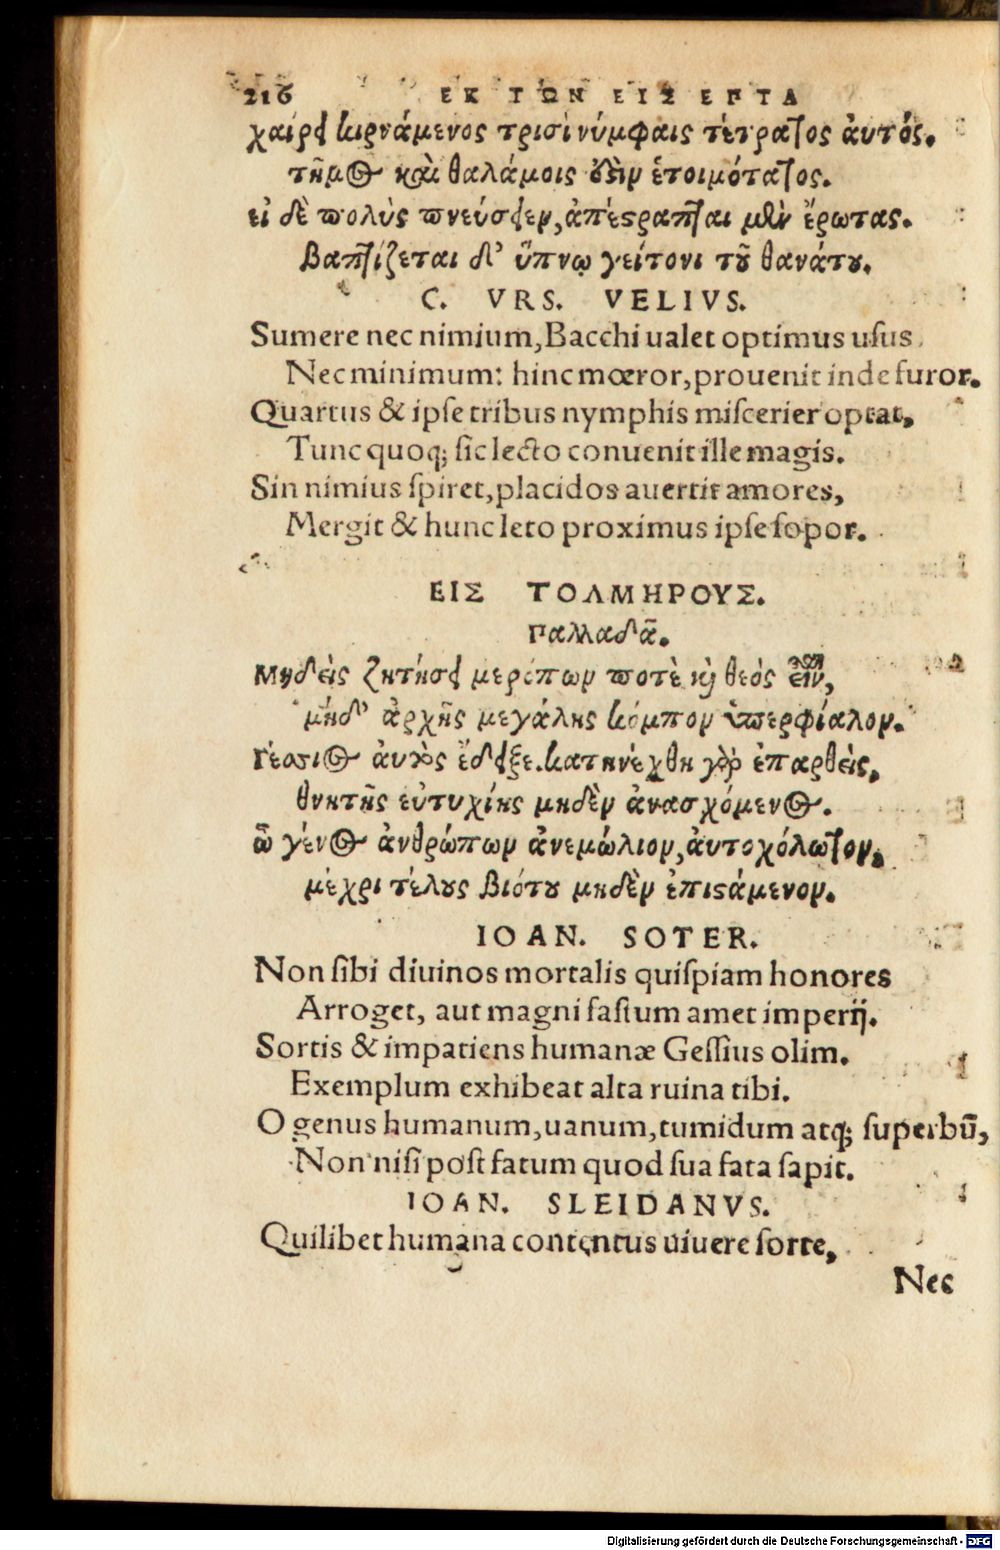 216 ΕΚ ΤΩΝ ΕΙΣ ΕΠΤΑ
χαίρει κιρνάμενος τρισὶ νύμφαις τέτρατος αὐτός.
τῆμος καὶ θαλάμοις ἐστὶν ἑτοιμότατος.
εἰ δὲ πολὺς πνεύσειεν, ἀπέστραπται μὲν ἔρωτας.
βαπτίζεται δ' ὕπνῳ γείτονι τοῦ θανάτου.
C. VRS. VELIVS.
Sumere nec nimium, Bacchi ualet optimus uſus,
Nec minimum: hinc mœror, prouenit inde furor.
Quartus & ipſe tribus nymphis miſcerier optat,
Tunc quoq; ſic lecto conuenit ille magis.
Sin nimius ſpiret, placidos auertit amores,
Mergit & hunc leto proximus ipſe ſopor.
ΕΙΣ ΤΟΛΜΗΡΟΥΣ.
Παλλαδᾶ.
Μηδεὶς ζητήσει μερόπων ποτὲ καὶ θεὸς εἶναι,
μηδ' ἀρχῆς μεγάλης κόμπον ὑπερφίαλον.
Γέσσιος αὐτὸς ἔδειξε. κατηνέχθη γὰρ ἐπαρθεὶς,
θνητῆς εὐτυχίης μηδὲν ἀνασχόμενος.
ὦ γένος ἀνθρώπων ἀνεμώλιον, αὐτοχόλωτον,
μέχρι τέλους βιότου μηδὲν ἐπιστάμενον.
IOAN. SOTER.
Non ſibi diuinos mortalis quiſpiam honores
Arroget, aut magni faſtum amet imperij.
Sortis & impatiens humanæ Geſſius olim.
Exemplum exhibeat alta ruina tibi.
O genus humanum, uanum, tumidum atq; ſuperbū,
Non niſi poſt fatum quod ſua fata ſapit.
IOAN. SLEIDANVS.
Quilibet humana contentus uiuere ſorte,
Nec
Digitalisierung gefördert durch die Deutsche Forschungsgemeinschaft - DFG